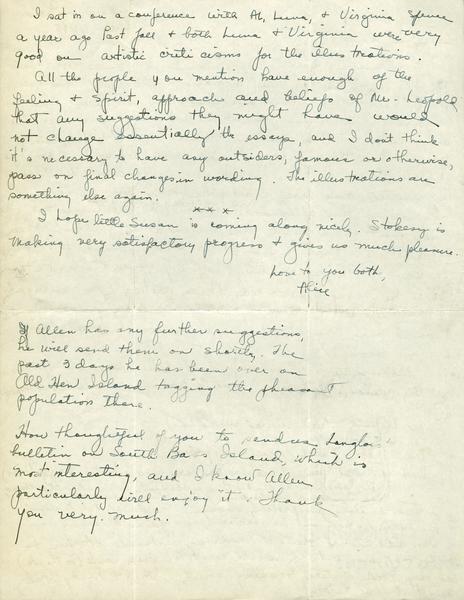 I sat in on a conference with Al, Luna, & Virginia Spence
a year ago last fall & both Luna & Virginia were very
good on artistic criticisms for the illustrations.
All the people you mention have enough of the
feeling & spirit, approach and beliefs of Mr. Leopold
that any suggestions they might have would
not change essentially the essays, and I don't think
it's necessary to have any outsiders, famous or otherwise,
pass on final changes in wording. The illustrations are
something else again.
* * *
I hope little Susan is coming along nicely. Stokesy is
making very satisfactory progress & gives us much pleasure.
Love to you both,
Alice
If Allen has any further suggestions,
he will send them on shortly. The
past 3 days he has been over on
Old Hen Island tagging the pheasant
population there.
How thoughtful of you to send us Langlois
bulletin on South Bass Island, which is
most interesting, and I know Allen
particularly will enjoy it. Thank
you very much.